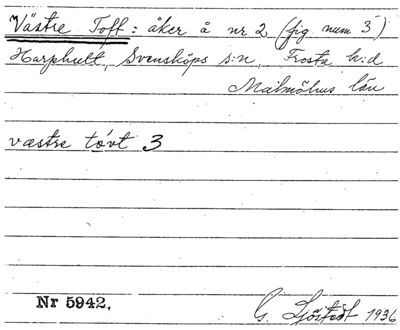 Västre Toft : åker å nr 2 (fig. num 3)
Harphult, Svensköps s:n, Frosta h:d
Malmöhus län
væstre tóvt 3
Nr 5942.
G. Sjöstedt 1936